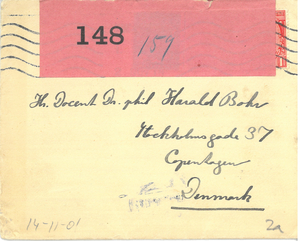 148
159
Hr. Docent Dr. phil Harald Bohr
Stockholmsgade 37
Copenhagen
Denmark
14-11-01
2a